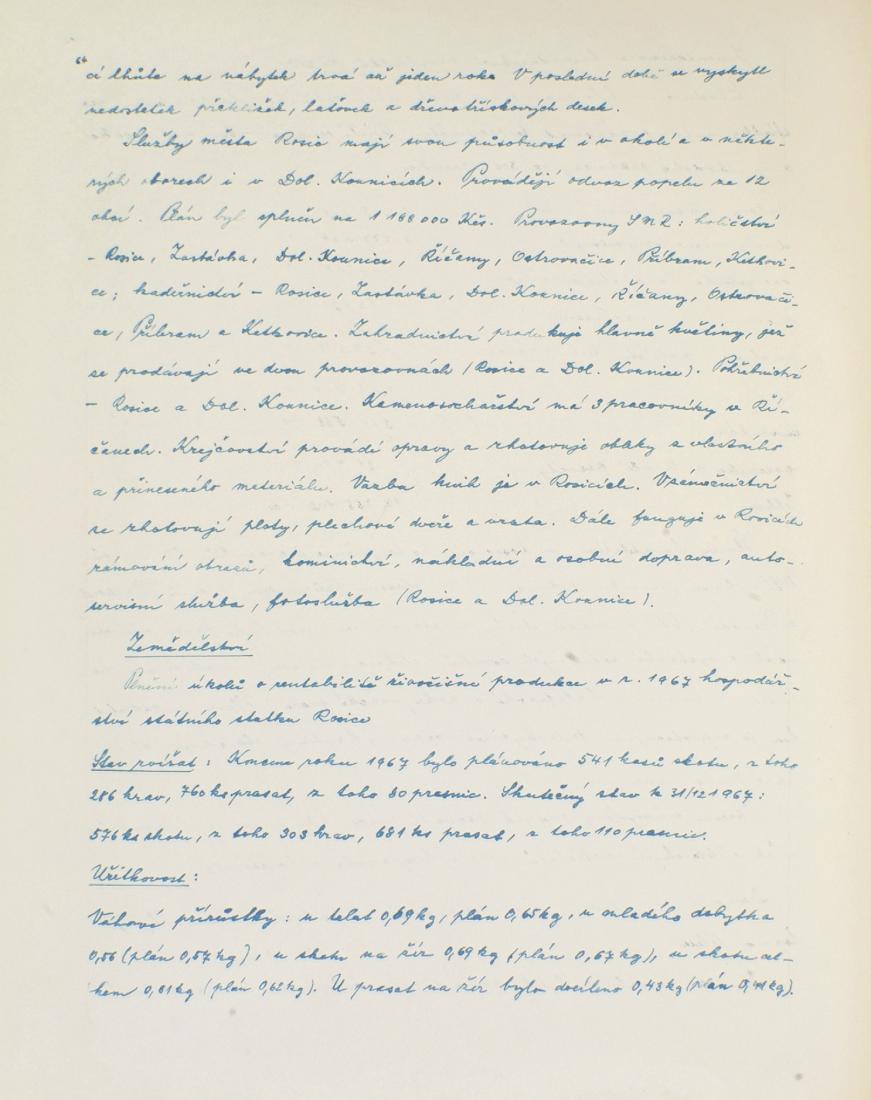 cí lhůta na nábytek trvá až jeden rok. V poslední době se vyskytl
nedostatek překližek, laťovek a dřevotřískových desek.
Služby města Rosic mají svou působnost i v okolí a v někte-
rých oborech i v Dol. Kounicích. Provádějí odvoz popelu ze 12
obcí. Plán byl splněn na 1 188 000 Kčs. Provozovny SMR: holičství
- Rosice, Zastávka, Dol. Kounice, Říčany, Ostrovačice, Příbram, Ketkovi-
ce; kadeřnictví - Rosice, Zastávka, Dol. Kounice, Říčany, Ostrovači-
ce, Příbram a Ketkovice. Zahradnictví produkuje hlavně květiny, jež
se prodávají ve dvou provozovnách (Rosice a Dol. Kounice). Pohřebnictví
- Rosice a Dol. Kounice. Kamenosochařství má 3 pracovníky v Ří-
čanech. Krejčovství provádí opravy a zhotovuje obleky z vlastního
a přineseného materiálu. Vazba knih je v Rosicích. V zámečnictví
se zhotovují ploty, plechové dveře a vrata. Dále funguje v Rosicích
rámování obrazů, kominictví, nákladní a osobní doprava, auto-
servisní služba, fotoslužba (Rosice a Dol. Kounice).
Zemědělství
Plnění úkolů o rentabilitě živočišné produkce v r. 1967 hospodář-
ství státního statku Rosice
Stav zvířat: Koncem roku 1967 bylo plánováno 541 kusů skotu, z toho
286 krav, 760 ks prasat, z toho 80 prasnic. Skutečný stav k 31/12 1967:
576 ks skotu, z toho 303 krav, 681 ks prasat, z toho 110 prasnic.
Užitkovost:
Váhové přírůstky: u telat 0,69 kg, plán 0,65 kg, u mladého dobytka
0,56 (plán 0,57 kg), u skotu na žír 0,69 kg (plán 0,67 kg), u skotu cel-
kem 0,61 kg (plán 0,62 kg). U prasat na žír bylo docíleno 0,43 kg (plán 0,41 kg).